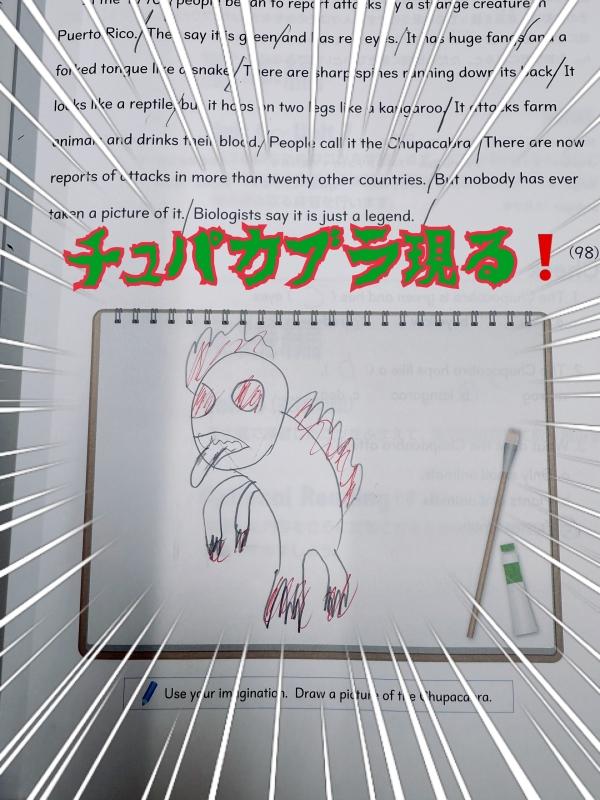 the 1970s, people began to report attacks by a strange creature in
Puerto Rico. They say it is green and has red eyes. It has huge fangs and a
forked tongue like a snake. There are sharp spines running down its back. It
looks like a reptile, but it hops on two legs like a kangaroo. It attacks farm
animals and drinks their blood. People call it the Chupacabra. There are now
reports of attacks in more than twenty other countries. But nobody has ever
taken a picture of it. Biologists say it is just a legend.
チュパカブラ現る!
(98)
Use your imagination. Draw a picture of the Chupacabra.